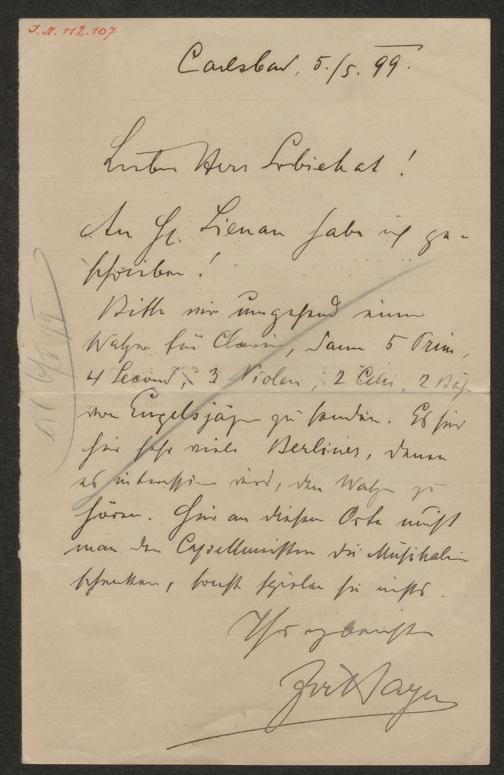 I.N. 112.107
Carlsbad, 5./5. 99.
Lieber Herr Sobieskat!
An H. Lienau habe ich ge-
schrieben!
Bitte mir umgehend einen
Walzer für Clavier, dann 5 Prim,
4 Second, 3 Violen, 2 Celli, 2 Bäße
von Engelsjäger zu senden. Es sind
hier sehr viele Berliner, denen
es interessiren wird, den Walzer zu
hören. Hier an diesem Orte muß
man den Capellmeistern die Musikalien
schenken, sonst spielen sie nichts.
Ihr ergebenster